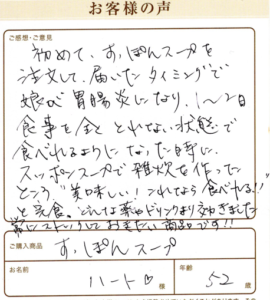 お客様の声
ご感想・ご意見
初めて、すっぽんスープを
注文して、届いたタイミングで
娘が胃腸炎になり、1〜2日
食事を全くとれない状態で
食べれるようになった時に、
スッポンスープで雑炊を作った
ところ"美味しい！これなら食べれる!!"
と完食。どんな薬やドリンクより効きました
常にストックしておきたい商品です!!
ご購入商品
すっぽんスープ
お名前
ハート♡ 様
年齢
52 歳